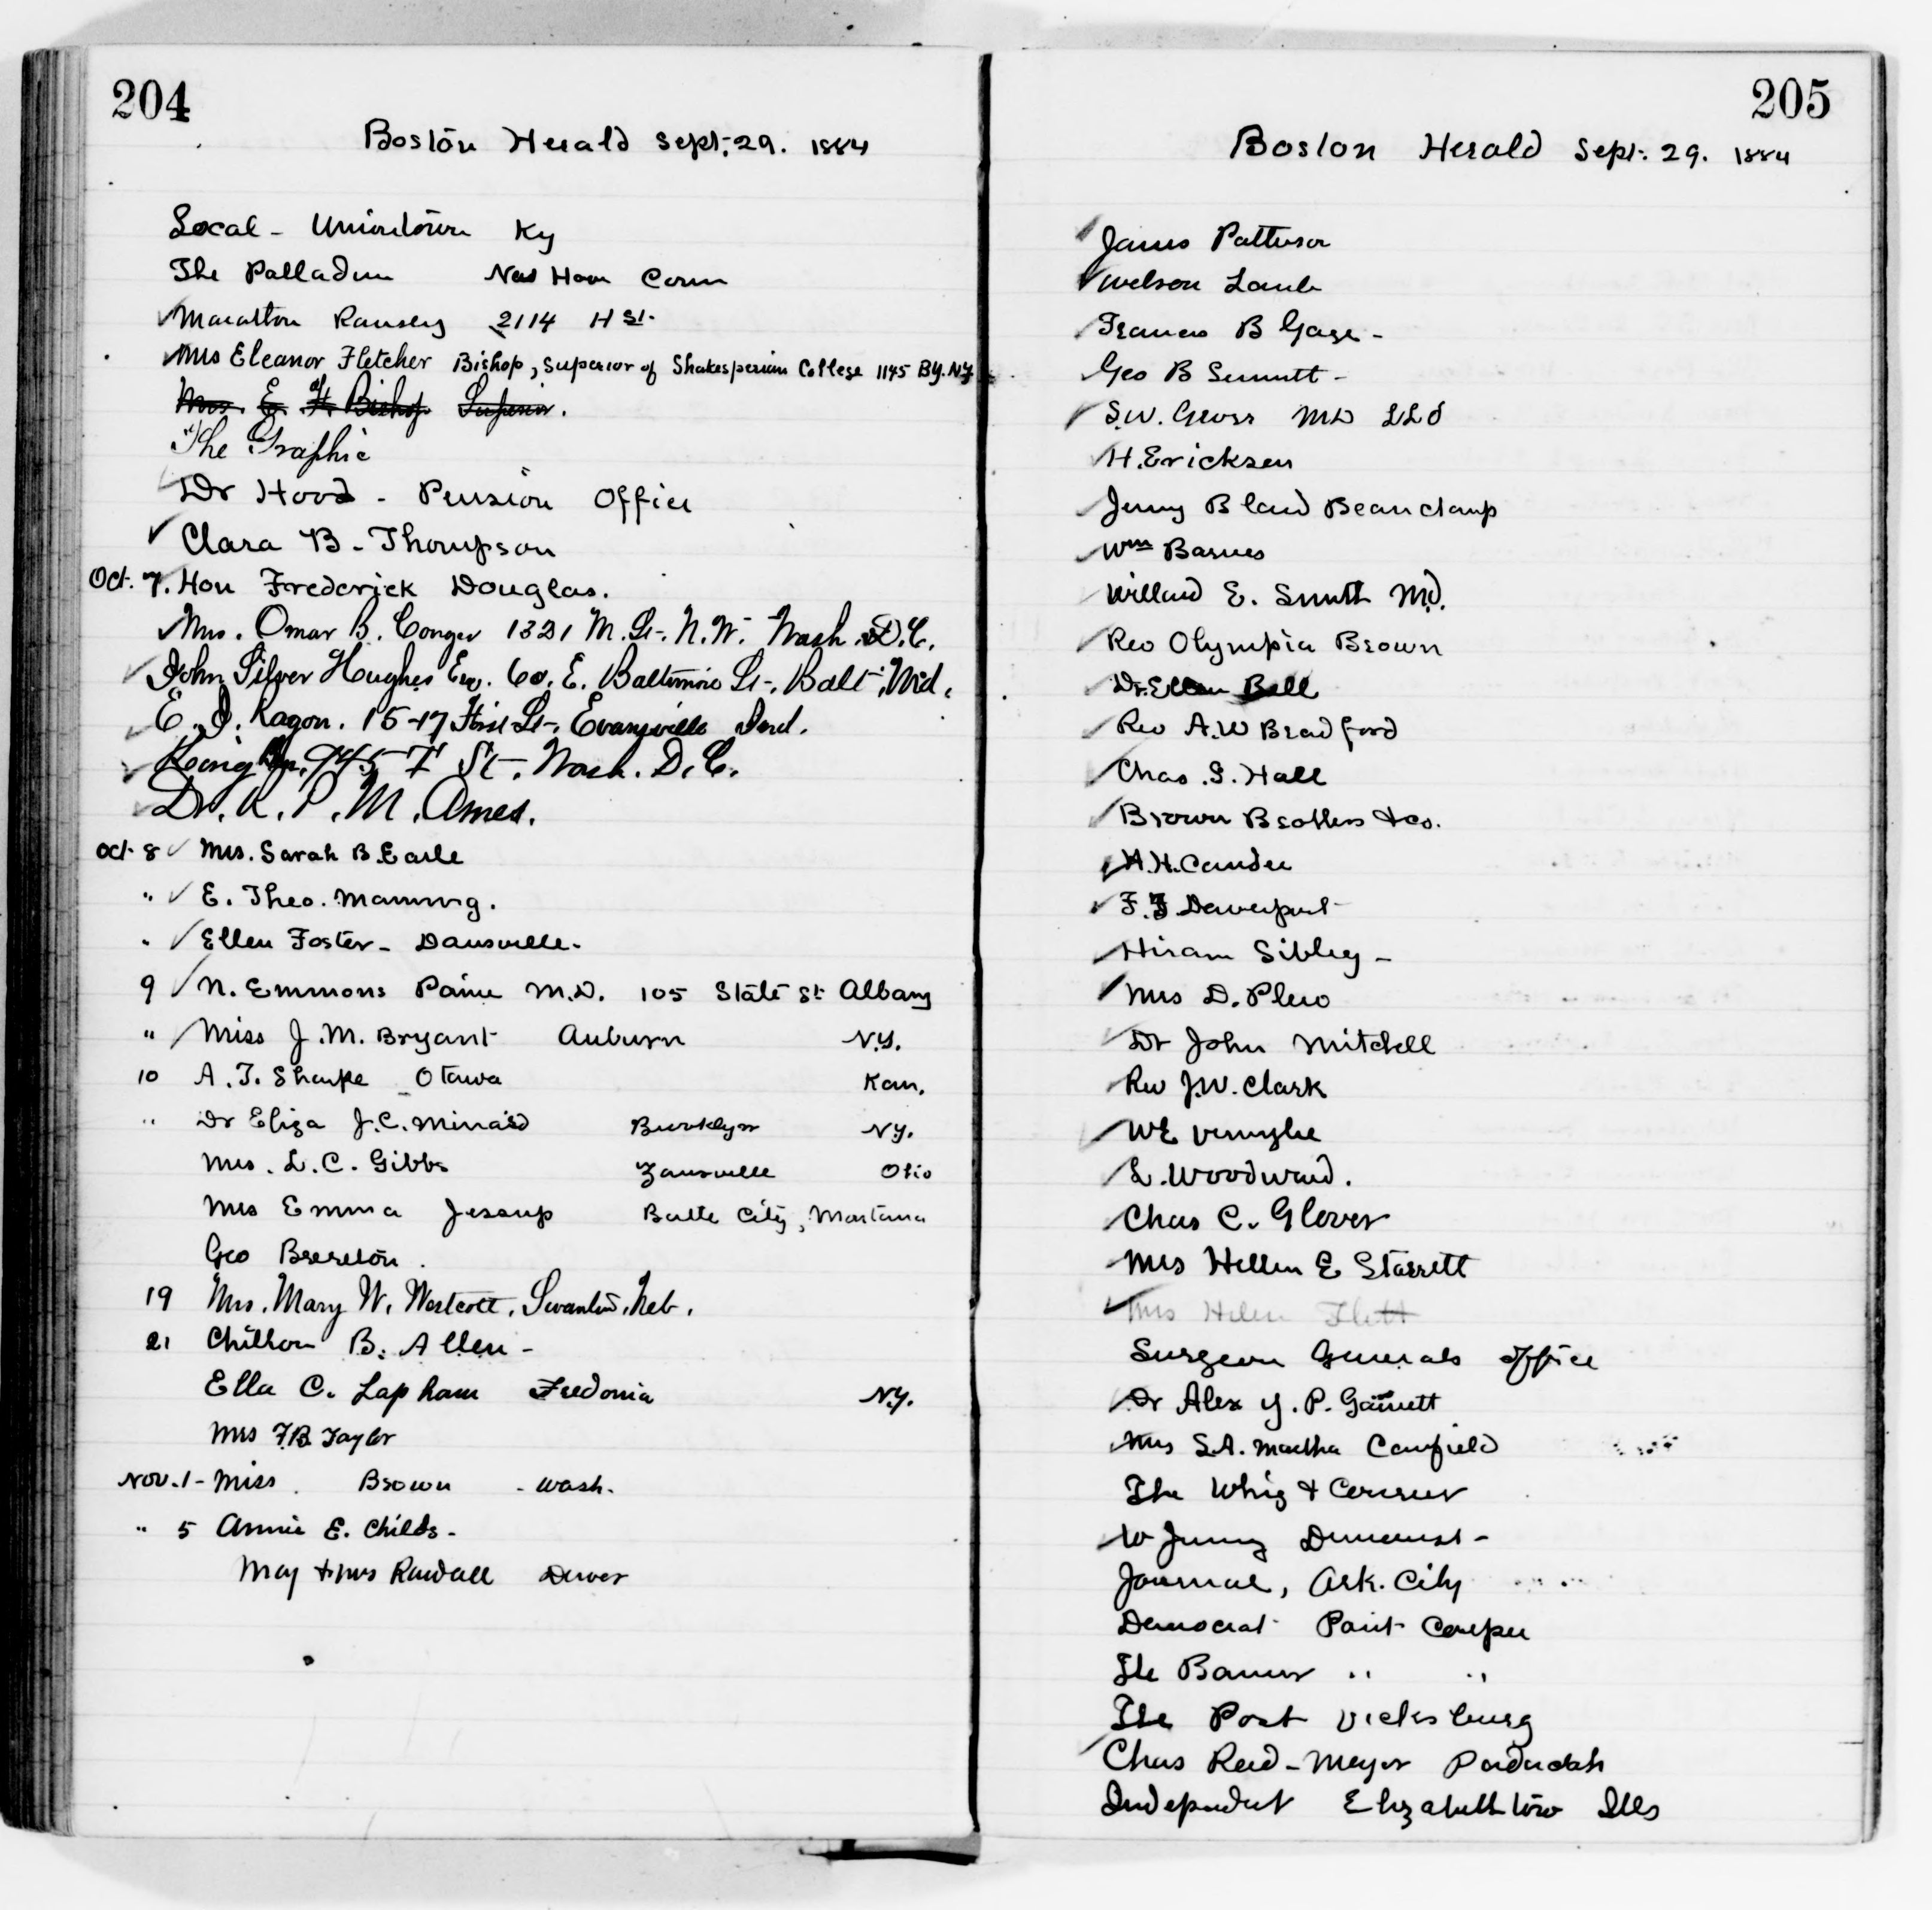 204
Boston Herald Sept. 29. 1884
Local - Uniontown Ky
The Palladium New Haven Conn
Ramsey 2114 H St.
Mrs Eleanor Fletcher Bishop, Superior of Shakesperian College 1145 BY. NY
Mrs. E. F. Bishop Superior.
The Graphic
Dr Hood - Pension Office
Clara B. Thompson
Oct. 7. Hon Frederick Douglas.
Mrs. Omar B. Conger 1321 M. St. N.W. Wash. D.C.
John Silver Hughes Esq. 60. E. Baltimore St. Balt. Md.
E. J. Ragon. 15-17 First St. Evansville Ind.
945 F St. Wash. D.C.
Dr. R. P. M. Ames.
Oct 8 Mrs. Sarah B. Earle
" E. Theo. Manning.
" Ellen Foster - Dansville.
9 N. Emmons Paine M.D. 105 State St Albany
" Miss J. M. Bryant Auburn N.Y.
10 A. T. Sharpe Otawa Kan.
" Dr Eliza J. C. Minard Brooklyn NY.
Mrs. L. C. Gibbs Zansville Ohio
Mrs Emma Jessup Butte City, Montana
Geo Brereton.
19 Mrs. Mary W. Westcott, Swanton, Neb.
21 Chillon B. Allen -
Ella C. Lapham Fredonia N.Y.
Mrs F. B. Taylor
Nov. 1 - Miss Brown - Wash.
" 5 Annie E. Childs -
Maj & Mrs Randall Denver
205
Boston Herald Sept. 29. 1884
James Patterson
Nelson Lamb
Frances B Gage -
Geo B
S. W. Gross MD LLD
H. Ericksen
Jenny Bland Beauchamp
Wm Barnes
Willard E. Smith MD.
Rev Olympia Brown
Dr. Ellen Bell
Rev A. W Bradford
Chas. S. Hall
Brown Brothers & Co.
H. H. Candee
F. J. Davenport
Hiram Sibley -
Mrs D.
Dr John Mitchell
Rev J. W. Clark
W E
L. Woodward.
Chas C. Glover
Mrs Hellen E Starrett
Mrs Helen
Surgeon Generals Office
Dr Alex Y. P. Garnett
Mrs S. A. Martha Canfield
The Whig & Courier
W Jenny Demorest -
Journal, Ark. City
Democrat Point Coupee
The Banner " "
The Post Vicksburg
Chas Reed - Mayor Paducah
Independent Elizabethtown Ills